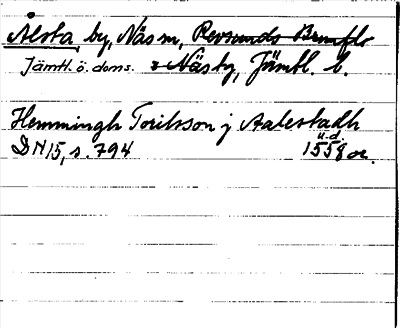 Ålsta by, Näs sn, Revsunds Brunflo
Jämtl. ö. doms. o Näs tg, Jämtl. l.
Hemmingh Torilsson j Aalestadh
u.d.
DN 15, s. 794 1558 or.